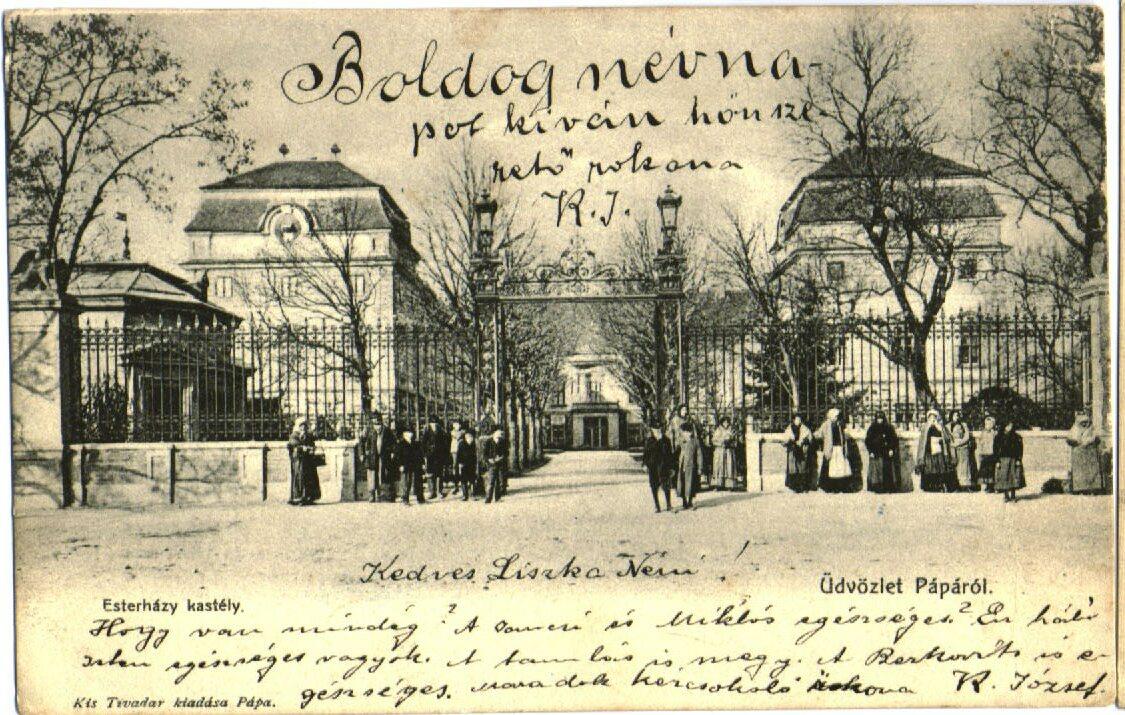 Boldog névna-
pot kíván hőn sze-
rető rokona
K. J.
Kedves Liszka Néni!
Üdvözlet Pápáról.
Esterházy kastély.
Hogy van mindég? A Samu és Miklós egészséges? Én hála
Isten egészséges vagyok. A tanulás is megy. A Berkovits is e-
gészséges. Maradok kézcsókoló rokona K. József.
Kis Tivadar kiadása Pápa.